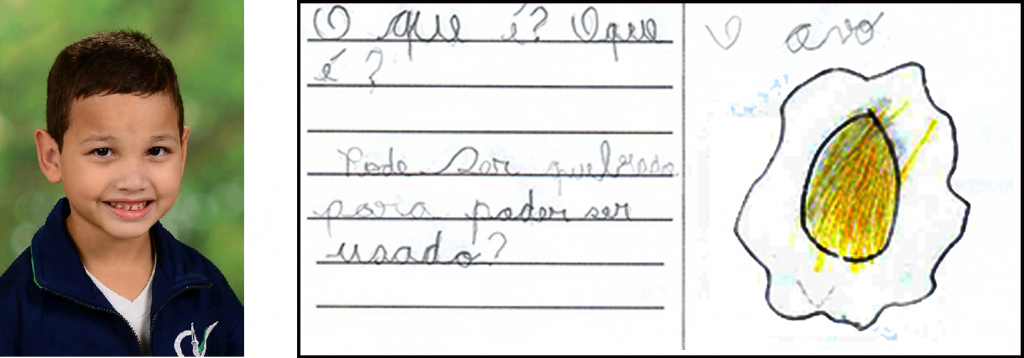 O que é? O que
é?
Pode ser quebrado
para poder ser
usado?
O ovo